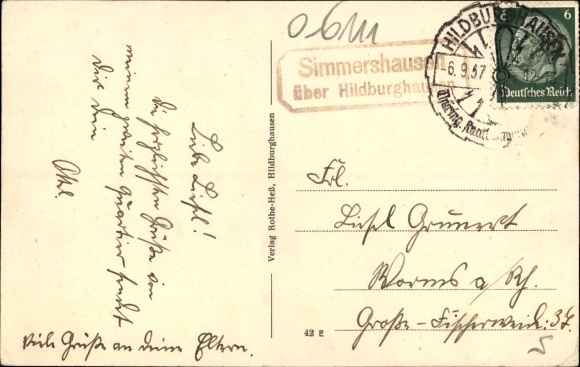 Liebe Liesl!
Die herzlichsten Grüße von
meinem zweiten Quartier sendet
Dir Dein
Viele Grüße an deine Eltern.
Verlag Rothe-Heß, Hildburghausen
42 E
06M
Simmershausen
über Hildburghausen
HILDBURGHAUSEN
-6.9.37
6
Deutsches Reich
Frl.
Liesl Grünert
Worms a/Rh.
Große-Fischerweide: 37.